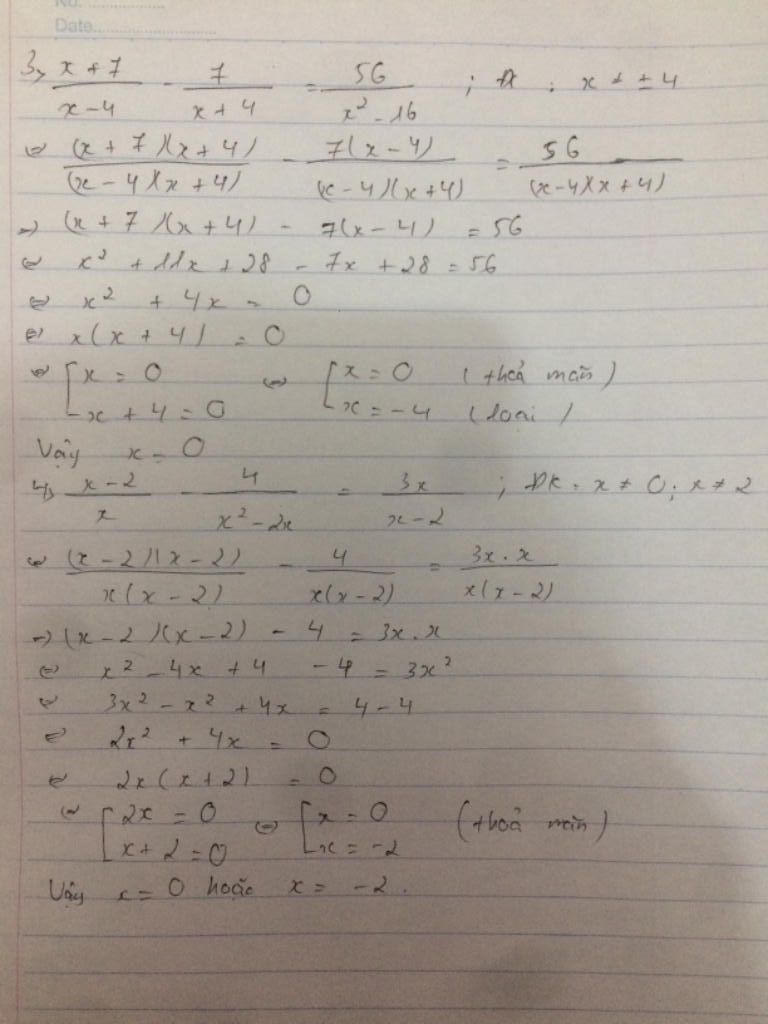 No. ........................
Date........................
3, (x + 7)/(x - 4) - 7/(x + 4) = 56/(x² - 16) ; ĐK : x ≠ ± 4
⇔ (x + 7)(x + 4)/(x - 4)(x + 4) - 7(x - 4)/(x - 4)(x + 4) = 56/(x - 4)(x + 4)
⇒ (x + 7)(x + 4) - 7(x - 4) = 56
⇔ x² + 11x + 28 - 7x + 28 = 56
⇔ x² + 4x = 0
⇔ x(x + 4) = 0
⇔ [x = 0 ⇔ [x = 0 (thoả mãn)
x + 4 = 0 x = -4 (loại)
Vậy x = 0
4, (x - 2)/x - 4/(x² - 2x) = 3x/(x - 2) ; ĐK : x ≠ 0 ; x ≠ 2
⇔ (x - 2)(x - 2)/x(x - 2) - 4/x(x - 2) = 3x.x/x(x - 2)
⇒ (x - 2)(x - 2) - 4 = 3x.x
⇔ x² - 4x + 4 - 4 = 3x²
⇔ 3x² - x² + 4x = 4 - 4
⇔ 2x² + 4x = 0
⇔ 2x(x + 2) = 0
⇔ [2x = 0 ⇔ [x = 0 (thoả mãn)
x + 2 = 0 x = -2
Vậy x = 0 hoặc x = -2.